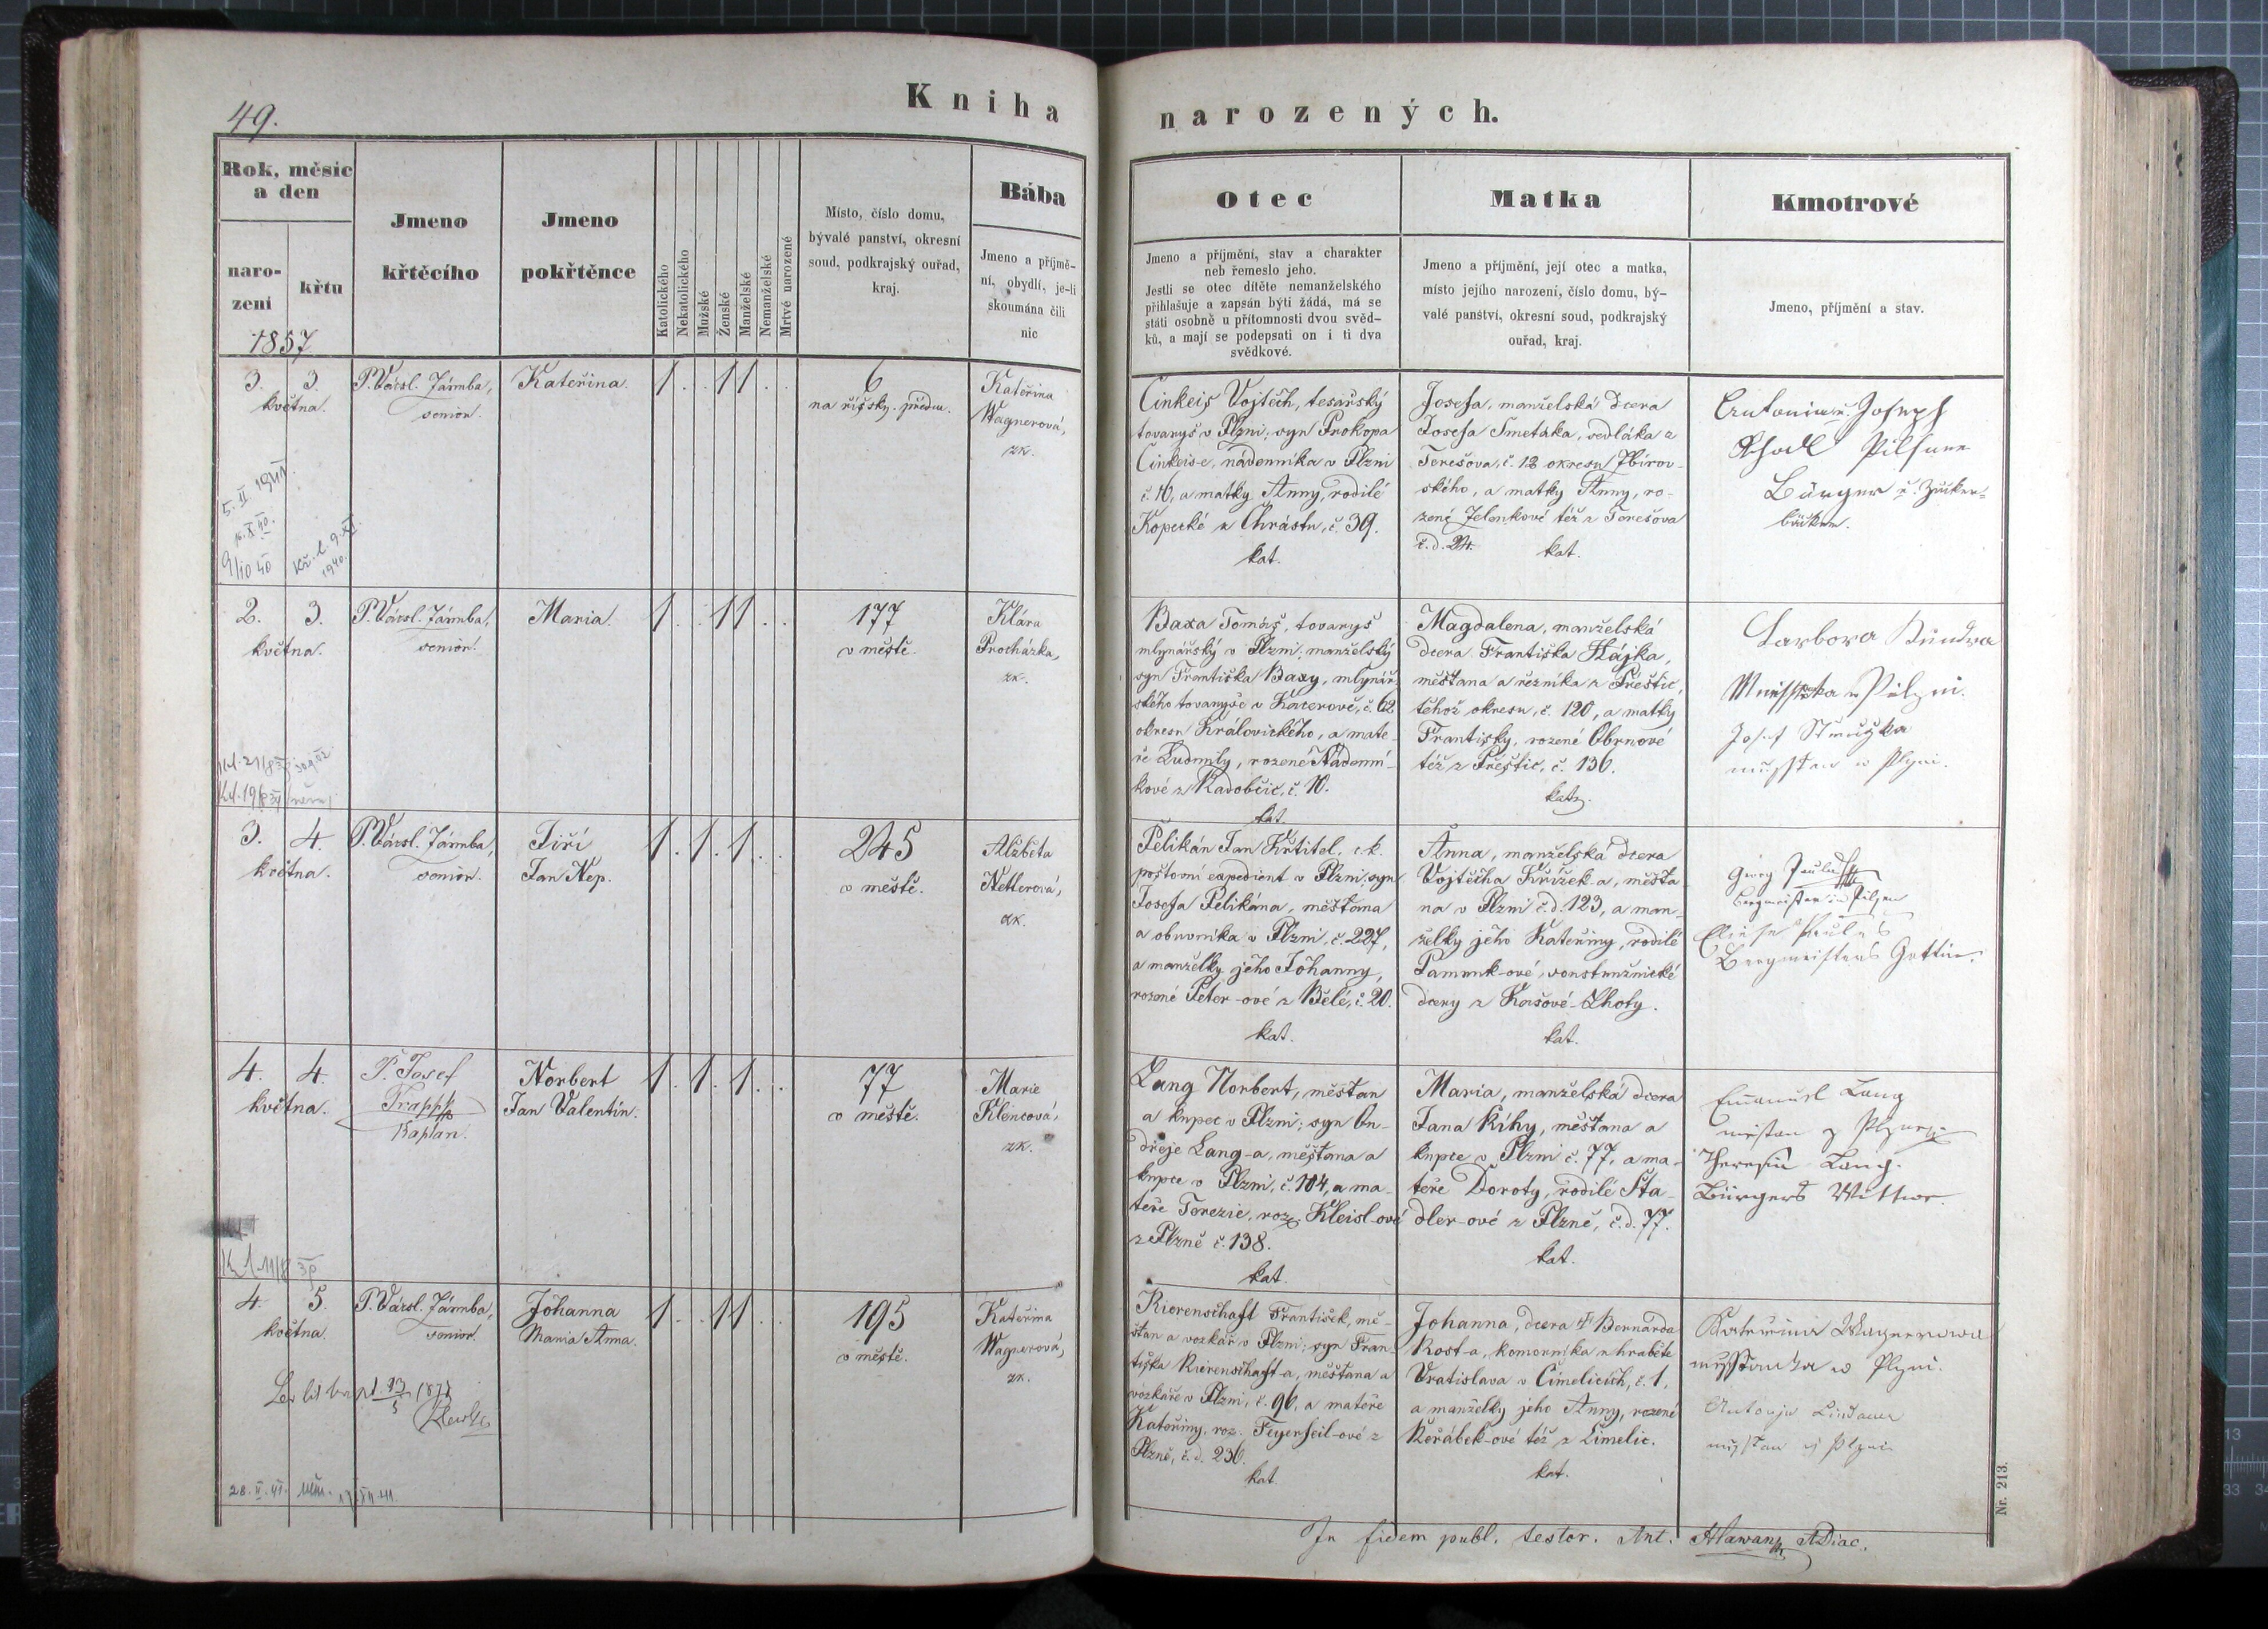 49.
Kniha narozených.
Rok, měsíc
a den
naro-
zení
křtu
1857
Jmeno
křtěcího
Jmeno
pokřtěnce
Katolického
Nekatolického
Mužské
Ženské
Manželské
Nemanželské
Mrtvé narozené
Místo, číslo domu,
bývalé panství, okresní
soud, podkrajský ouřad,
kraj.
Bába
Jmeno a příjmě-
ní, obydlí, je-li
skoumána čili
nic
Otec
Jmeno a příjmění, stav a charakter
neb řemeslo jeho.
Jestli se otec dítěte nemanželského
přihlašuje a zapsán býti žádá, má se
státi osobně u přítomnosti dvou svěd-
ků, a mají se podepsati on i ti dva
svědkové.
Matka
Jmeno a příjmění, její otec a matka,
místo jejího narození, číslo domu, bý-
valé panství, okresní soud, podkrajský
ouřad, kraj.
Kmotrové
Jmeno, příjmění a stav.
3. 3.
května.
P. Václ. Jármba,
senior.
Kateřina.
1 . . 1 1 . .
6
na říšsky. předm.
Kateřina
Wagnerová,
zk.
Cinkeis Vojtěch, tesařský
tovaryš v Plzni; syn Prokopa
Cinkeis-e, nádenníka v Plzni
č. 10, a matky Anny, rodilé
Kopecké z Chrástu, č. 39.
kat.
Josefa, manželská dcera
Josefa Smetáka, sedláka z
Terešova, č. 12 okresu Zbirov-
ského, a matky Anny, ro-
zené Jelenkové též z Terešova
č. d. 24. kat.
Antonia u. Joseph
Pilsner
Bürger u. Zucker-
bäcker.
5. II 1941
9/10 40
1940.
2. 3.
května.
P. Václ. Jármba,
senior.
Maria.
1 . . 1 1 . .
177
v městě.
Klára
Procházka,
zk.
Baxa Tomáš, tovaryš
mlynářský v Plzni, manželský
syn Františka Baxy, mlynář-
ského tovaryše v Kacerově, č. 62
okresu Královického, a mate-
ře Ludmily, rozené Nádenní-
kové z Radobčic, č. 10.
kat.
Magdalena, manželská
dcera Františka Hájka,
měšťana a řezníka z Přeštic,
téhož okresu, č. 120, a matky
Františky, rozené Obrnové
též z Přeštic, č. 136.
kat.
Josef
w Plzni.
3. 4.
května.
P. Václ. Jármba,
senior.
Jiří
Jan Nep.
1 . 1 . 1 . .
245
v městě.
Alžběta
Netlerová,
zk.
Pelikán Jan Křtitel, c.k.
poštovní expedient v Plzni, syn
Josefa Pelikána, měšťana
a obuvníka v Plzni, č. 227,
a manželky jeho Johanny,
rozené Peter-ové z Bělé, č. 20.
kat.
Anna, manželská dcera
Vojtěcha Křížek-a, měšťa-
na v Plzni č. d. 123, a man-
želky jeho Kateřiny, rodilé
Pamunk-ové, konstružnické
dcery z Kašové-Lhoty.
kat.
Georg Paulus
Bergmeister in Pilsen
Paulus
Bergmeisters Gattin.
4. 4.
května.
P. Josef
Trappl
Kaplan.
Norbert
Jan Valentin.
1 . 1 . 1 . .
77
v městě.
Marie
Klencová,
zk.
Lang Norbert, měšťan
a kupec v Plzni; syn On-
dřeje Lang-a, měšťana a
kupce v Plzni, č. 104, a ma-
teře Terezie, roz. Kleisl-ové
z Plzně č. 138.
kat.
Maria, manželská dcera
Jana Kihy, měšťana a
kupce v Plzni č. 77, a ma-
teře Doroty, rodilé Sta-
dler-ové z Plzně, č. d. 77.
kat.
Emanuel Lang
Theresia Lang.
Bürgers Witwe.
4. 5.
května.
P. Václ. Jármba,
senior.
Johanna
Maria Anna.
1 . . 1 1 . .
195
v městě.
Kateřina
Wagnerová,
zk.
Rierenschaft František, mě-
šťan a vozkář v Plzni; syn Fran-
tiška Rierenschaft-a, měšťana a
vozkáře v Plzni, č. 96, a mateře
Kateřiny, roz. Feyerfeil-ové z
Plzně, č. d. 236.
kat.
Johanna, dcera † Bernarda
Rost-a, komorníka u hraběte
Vratislava v Čimelicích, č. 1,
a manželky jeho Anny, rozené
Keřábek-ové též z Čimelic.
kat.
Kateřina Wagnerowa
w Plzni.
Lindauer
Nr. 213.
In fidem publ. testor. Ant. Hlawan ADiac.